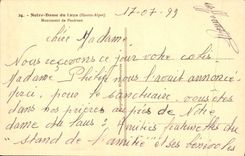 24. - Notre-Dame du Laus (Hautes-Alpes)
Monument du Pindreau
17-07-99
chère Madame,
Nous recevons ce jour votre colis.
Madame Philip nous l'avait annoncé.
Merci, pour le sanctuaire. vous êtes
dans nos prières au pieds de Notre
dame du Laus ? Amitiés fraternelles du
"stand de l'amitié" et ses bénévoles